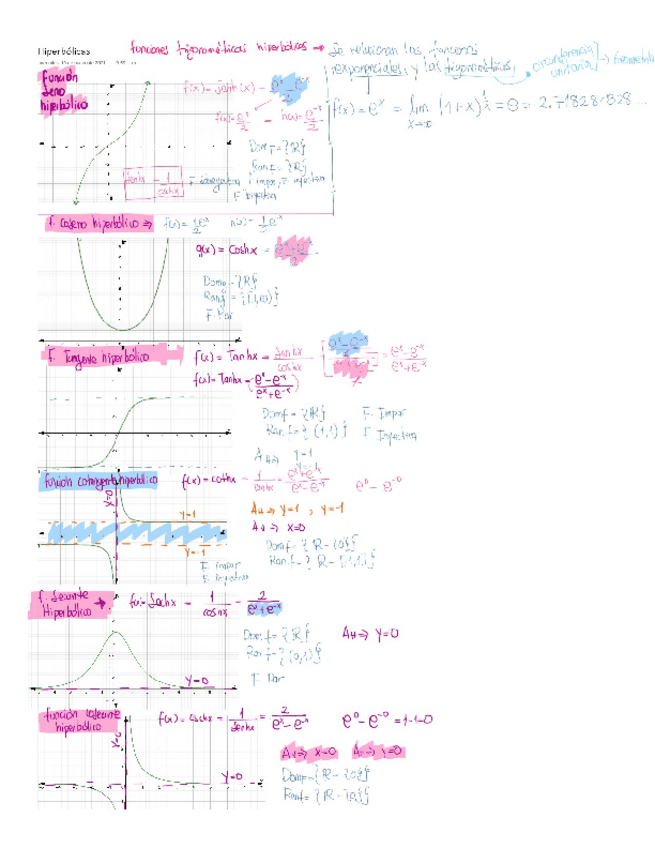 Hiperbólicas
funciones trigonométricas hiperbólicas → Se relacionan las funciones
exponenciales y las trigonométricas
circunferencia unitaria
función seno hiperbólico
f(x) = senh(x) = e^x - e^-x / 2
f(x) = e^x/2 - h(x) = e^-x/2
f(x) = e^x = lim x→∞ (1+x)^1/x = e = 2.71828
Dom f = {R}
Ran f = {R}
f. coseno hiperbólico ⇒ f(x) = 1/2 e^x h(x) = 1/2 e^x
g(x) = coshx = e^x+e^-x / 2
Dom g = {R}
Ran g = {[1,∞)}
F. Par
F. Tangente hiperbólico
f(x) = Tanhx = senhx/coshx = e^x - e^-x / e^x + e^-x
f(x) = Tanhx = e^x - e^-x / e^x + e^-x
Dom f = {R} F. Impar
Ran f = {(1,1)} F Inyectiva
función cotangente hiperbólico f(x) = cothx = 1/tanhx = e^x+e^-x / e^x-e^-x e^0 - e^-0
X=0
Y=1
Y=-1
AH ⇒ Y=1 , Y=-1
AV ⇒ X=0
Dom f = {R - {0}}
F. impar
F. Inyectiva
f. Secante Hiperbólico → f(x) = Sechx = 1/coshx = 2/e^x+e^-x
Dom f = {R} AH ⇒ Y=0
Y=0
F. Par
función cosecante hiperbólico f(x) = cschx = 1/senhx = 2/e^x - e^-x e^0 - e^-0 = 1-1=0
AV ⇒ X=0
Y=0
Dom f = {R - {0}}
Ran f = {R - {0}}